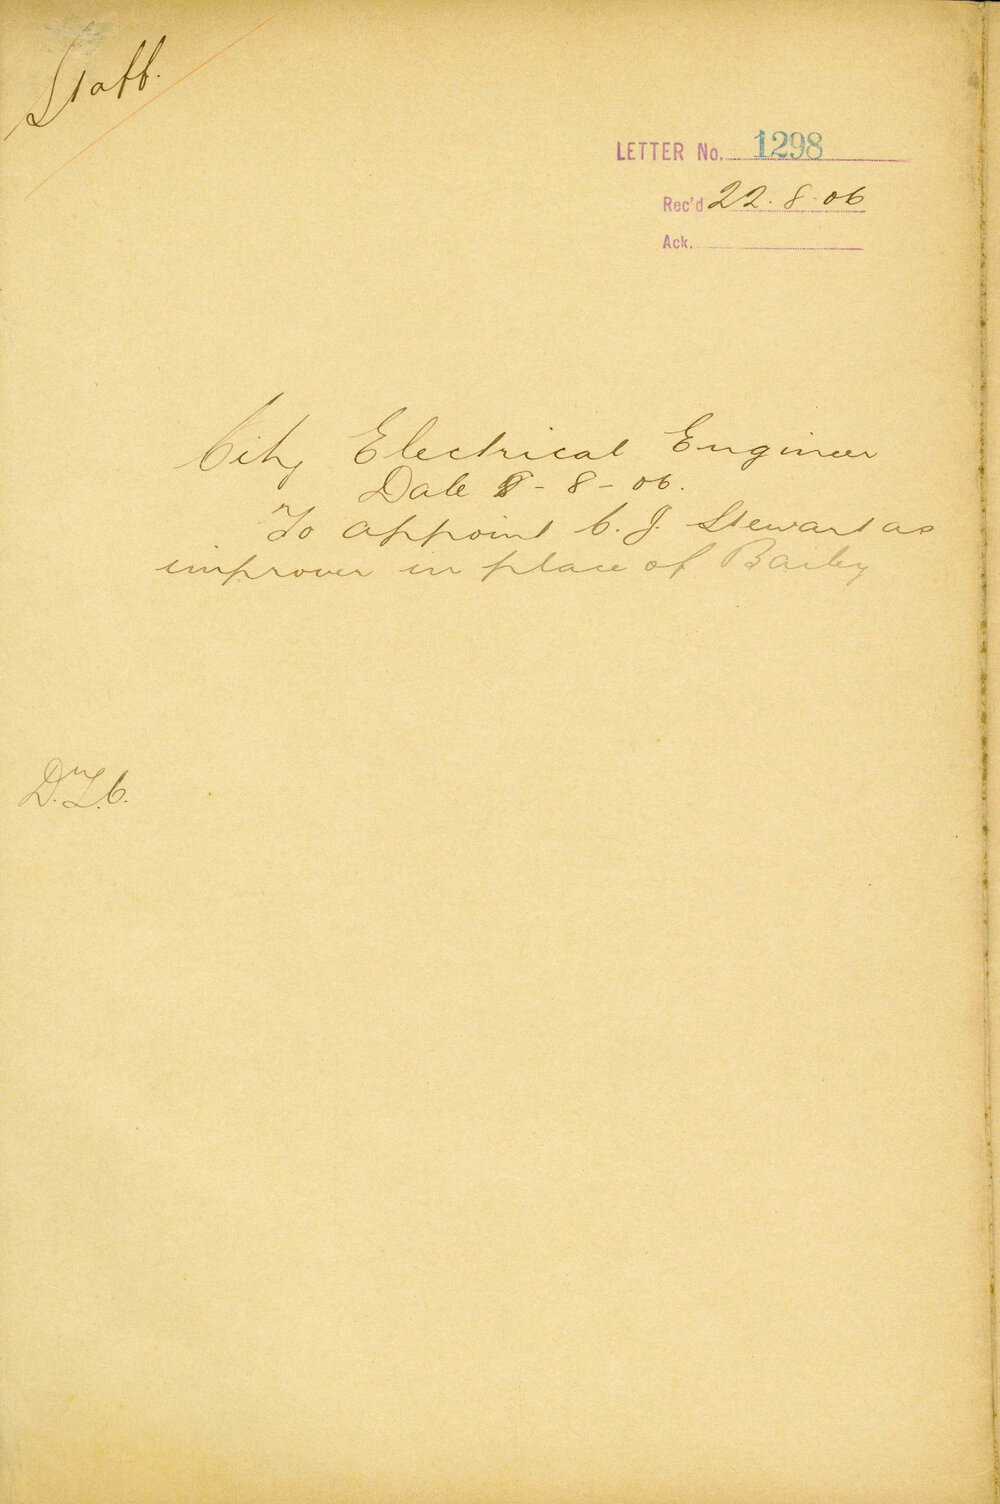 Staff.
LETTER No. 1298
Rec'd 22.8.06
Ack.
City Electrical Engineer
Date 8-8-06.
To appoint C. J. Stewart as
improver in place of Bailey